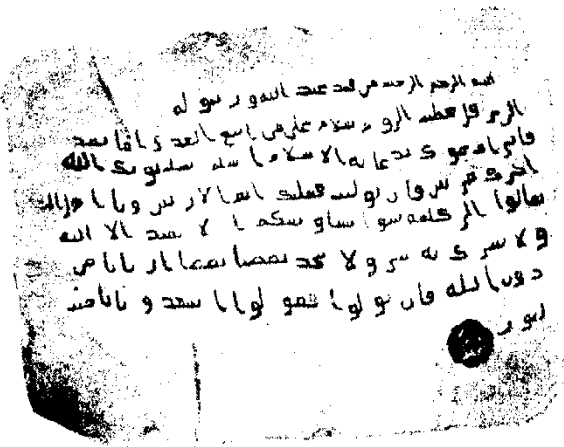 بسم الله الرحمن الرحيم من محمد عبد الله ورسوله
الى هرقل عظيم الروم سلام على من اتبع الهدى اما بعد
فاني ادعوك بدعاية الاسلام اسلم تسلم يوتك الله
اجرك مرتين فان توليت فعليك اثم الاريسين ويا اهل الكتاب
تعالوا الى كلمة سوا بيننا وبينكم الا نعبد الا الله
ولا نشرك به شيا ولا يتخذ بعضنا بعضا اربابا من
دون الله فان تولوا فقولوا اشهدوا بانا مسلمون